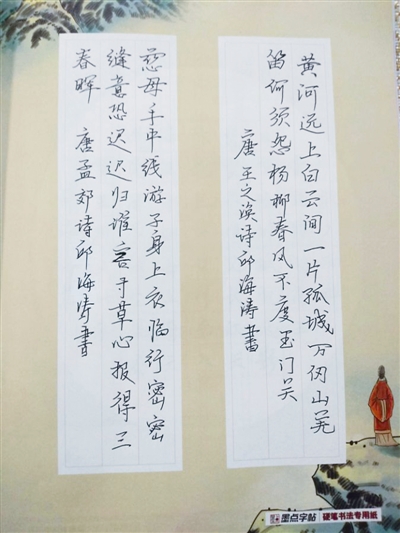 黄河远上白云间一片孤城万仞山羌
笛何须怨杨柳春风不度玉门关
唐王之涣诗邱海涛書
慈母手中线游子身上衣临行密密
缝意恐迟迟归谁言寸草心报得三
春晖 唐孟郊诗邱海涛書
墨点字帖 硬笔书法专用紙